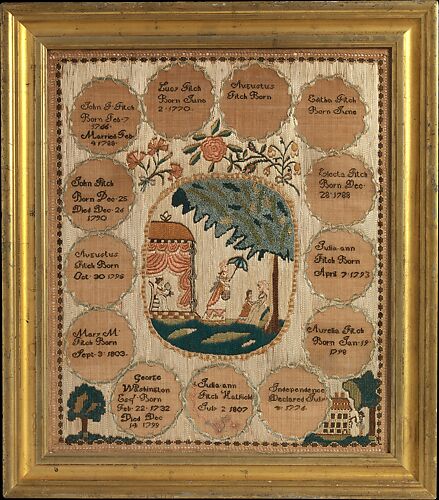 John G. Fitch
Born Feb. 7
1766.
Married Feb.
4 1788.
Lucy Fitch
Born June
2 1770.
Augustus
Fitch Born
Editha Fitch
Born June
John Fitch
Born Dec. 25
Died Dec. 26
1790
Electa Fitch
Born Dec.
28. 1788
Augustus
Fitch Born
Oct. 30 1796
Julia ann
Fitch Born
April 7 1793
Mary M.
Fitch Born
Sept. 3. 1803.
Aurelia Fitch
Born Jan. 19
1798
George
Washington
Esqr. Born
Feb. 22. 1732
Died Dec
14 1799
Julia ann
Fitch Hatfield
July 2 1807
Independence
Declared July
4. 1776.